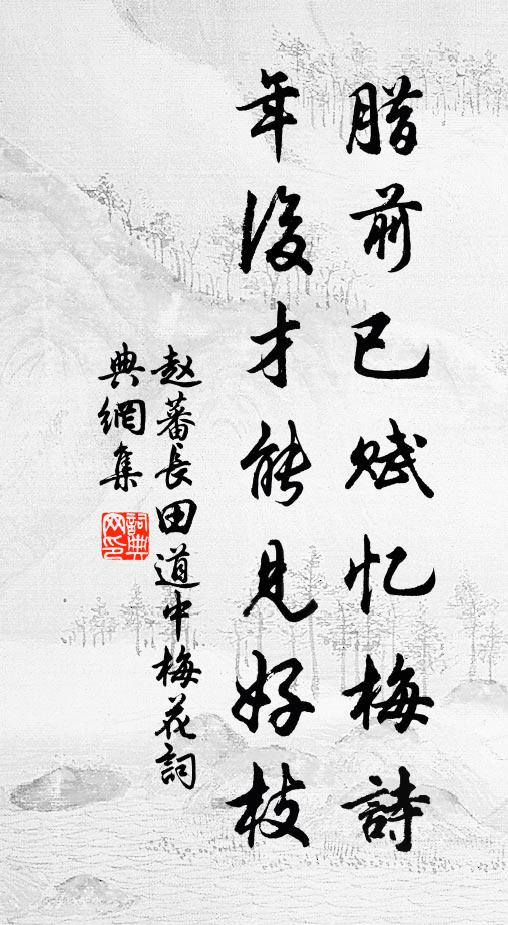 腊前已赋忆梅詩
年後才能見好枝
赵蕃長田道中梅花詞
典網集
詞典网印